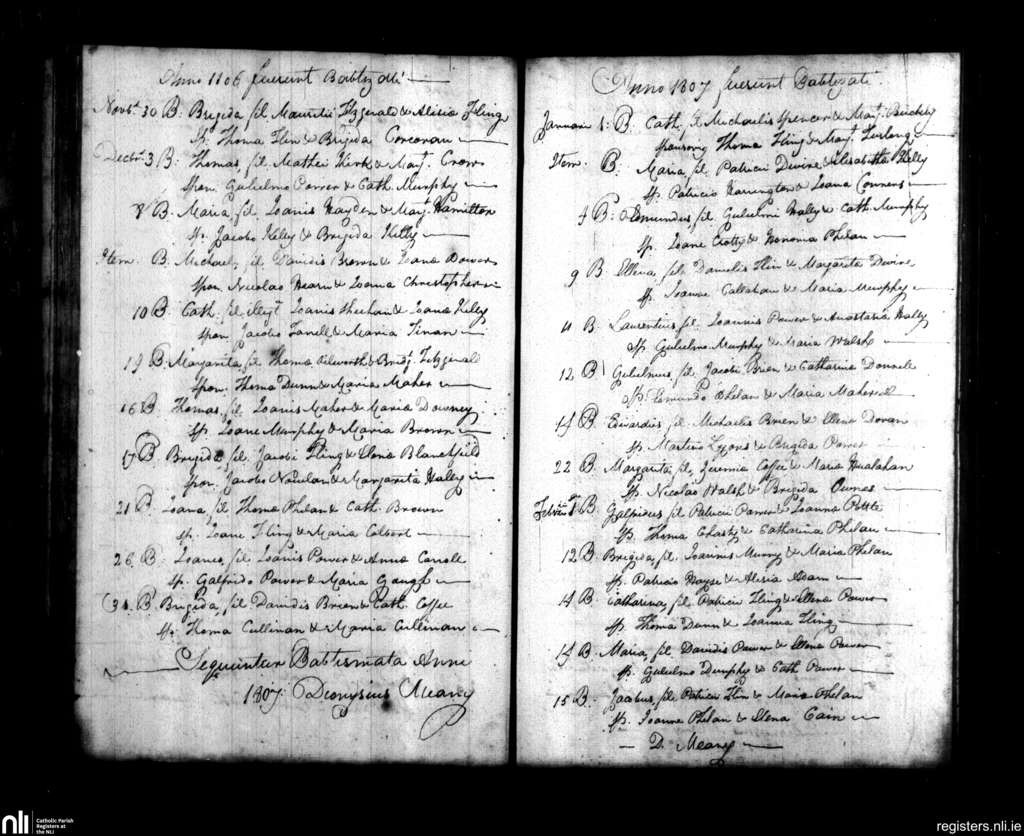 Anno 1806 fuerunt Babtizati
Novr. 30 B. Brigida fil Mauritii Fitzgerald & Alisia Fling
Sp. Thoma Flin & Brigida Corcoran
Decbr. 3 B. Thomas fil. Mathei Kirk & Mary
Spon. Gulielmo Power & Cath. Murphy
8 B. Maria fil. Joanis Hayden & Mary Hamilton
Sp. Jacobo Kelly & Brigida Kelly
Item. B. Michael, fil. Davidis Brown & Joana Power
Spon. Nicolao Hearn & Joanna Christopher
10 B. Cath. fil illegt Joanis Sheehan & Joana Kelly
Spon. Jacobo & Maria
B. Margarita, fil. Thoma & Bridj. Fitzgerald
Spon. Thoma Dunn & Maria Maher
16 B. Thomas, fil. Joanis Maher & Maria Downey
Sp. Joane Murphy & Maria Brown
17 B. Brigida fil. Jacobi Fling & Elena Blanchfield
Spon. Jacobo Nowlan & Margarita Hally
21 B. Joana, fil Thoma Phelan & Cath. Brown
Sp. Joane Fling & Maria Colbert
26. B. Joanes, fil. Joanis Power & Anna Carroll
Sp. Galfrido Power & Maria Gough
31. B. Brigida, fil Davidis Brien & Cath. Coffee
Sp. Thoma Cullinan & Maria Cullinan
Sequuntur Babtismata Anni
1807. Dionysius Meany
Anno 1807 fuerunt Babtizati
Januarii 1. B. Cath. fil Michaelis Spencer & Mary
Sponsory Thoma Fling & Mary Furlong
Item. B. Maria fil. Patricii Devine & Elisabetha Kelly
Sp. Patricio Harrington & Joana Conners
4 B. Edmundus fil. Gulielmi Hally & Cath. Murphy
Sp. Joane Crotty & Phelan
9 B Ellena, fil. Danielis Flin & Margarita Devine
Sp. Joanne Callahan & Maria Murphy
11 B. Laurentius fil. Joannis Power & Anastasia Hally
Sp. Gulielmo Murphy & Maria Walsh
12 B Gulielmus, fil. Jacobi Brien & Catharina Donnele
Sp. Edmundo Phelan & Maria
14 B. Edwardus fil. Michaelis Brien & Ellena Doran
Sp. Martino Lyons & Brigida Power
22 B. Margarita fil. Jeremia Coffee & Maria Hualahan
Sp. Nicolao Walsh & Brigida
B Galfridus fil Patricii Power & Joanna
Sp. Thoma & Catharina Phelan
12 B. Brigida, fil. Joannis Murry & Maria Phelan
Sp. Patricio & Alisia
14 B. Catharina, fil. Patricii Fling & Ellena Power
Sp. Thoma Dunn & Joanna Fling
14 B. Maria, fil. Davidis Power & Elena Power
Sp. Gulielmo Dunphy & Cath Power
15 B. Jacobus, fil. Patricii Flin & Maria Phelan
Sp. Joanne Phelan & Elena Cain
D. Meany
nli Catholic Parish
Registers at
the NLI
registers.nli.ie